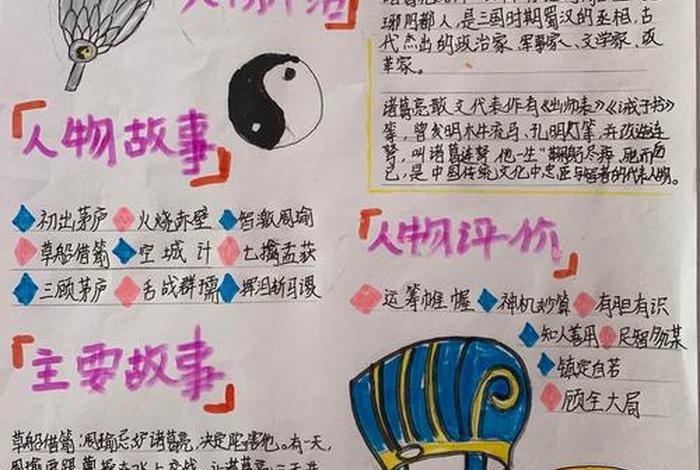 琊阳都人,是三国时期蜀汉的丞相,古
代杰出的政治家、军事家、文学家、改
革家。
诸葛亮散文代表作有《出师表》《诫子书》
等,曾发明木牛流马、孔明灯等,并改造连
弩,叫诸葛连弩。他一生“鞠躬尽瘁,死而后
已,是中国传统文化中忠臣与智者的代表人物。
人物故事
初出茅庐 火烧赤壁 智激周瑜
草船借箭 空城计 七擒孟获
三顾茅庐 舌战群儒 挥泪斩马谡
人物评价
运筹帷幄 神机妙算 有胆有识
知人善用 足智多谋
镇定自若
顾全大局
主要故事
草船借箭:周瑜忌妒诸葛亮,决定陷害他。有一天,